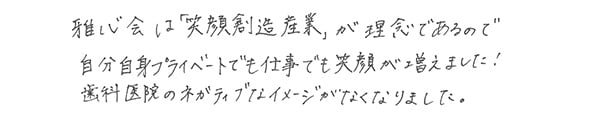 雅心会は「笑顔創造産業」が理念であるので
自分自身プライベートでも仕事でも笑顔が増えました!
歯科医院のネガティブなイメージがなくなりました。